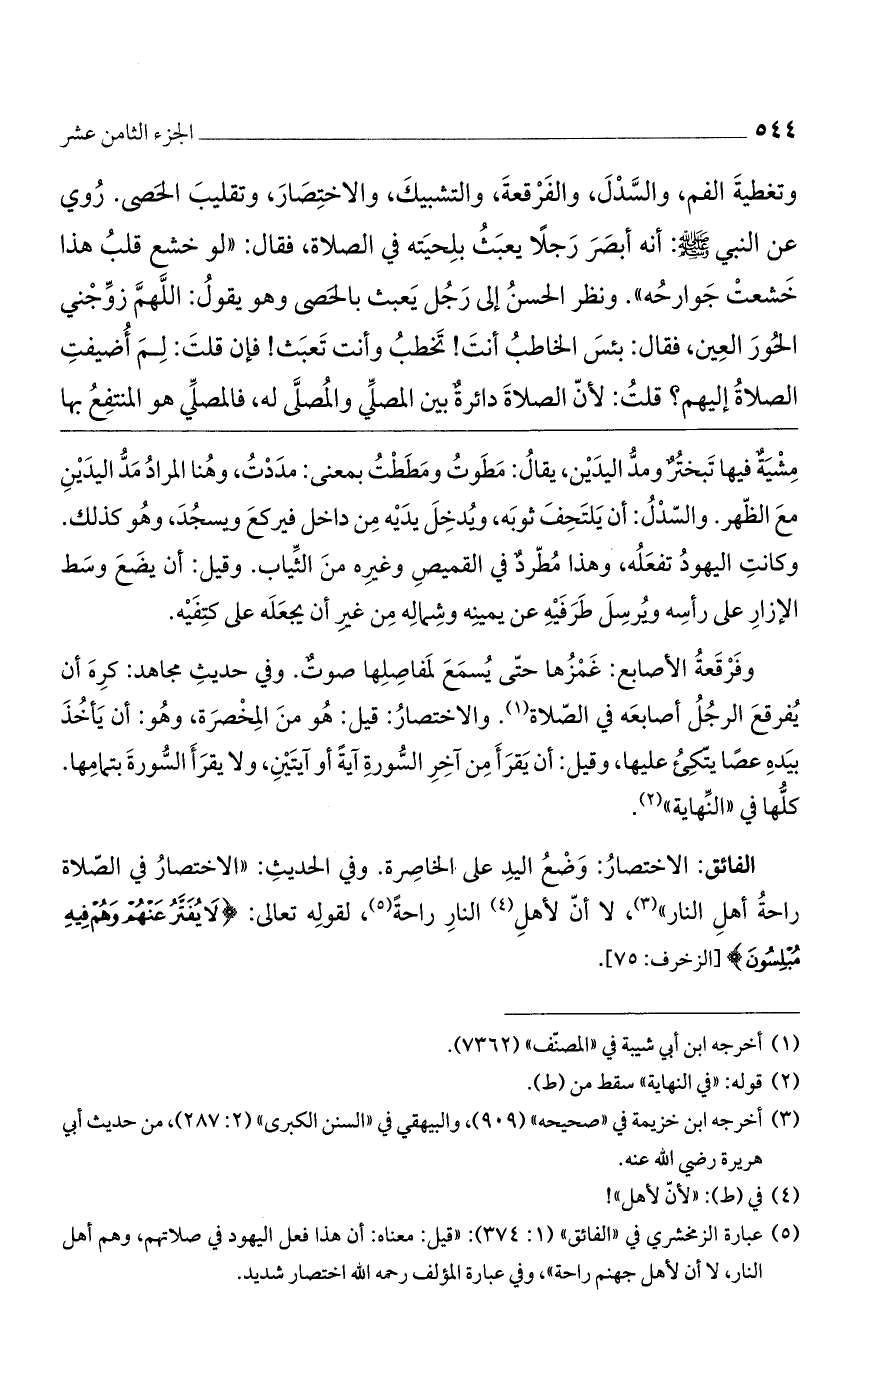 ٥٤٤ ــــــــــــــــــــــــــــــــــــــــ الجزء الثامن عشر
وتغطيةَ الفم، والسَّدْلَ، والفَرْقعةَ، والتشبيكَ، والاختِصَارَ، وتقليبَ الحَصى. رُوي
عن النبي ﷺ: أنه أبصَرَ رَجلًا يعبَثُ بلِحيَته في الصلاة، فقال: «لو خشع قلبُ هذا
خَشعتْ جَوارحُه». ونظر الحسنُ إلى رَجُل يَعبث بالحَصى وهو يقولُ: اللَّهمَّ زوِّجْني
الحُورَ العِين، فقال: بئسَ الخاطبُ أنتَ! تَخطبُ وأنت تَعبَث! فإن قلتَ: لِـمَ أُضيفتِ
الصلاةُ إليهم؟ قلتُ: لأنّ الصلاةَ دائرةٌ بين المصلِّي والمُصلَّى له، فالمصلِّي هو المنتفِعُ بها
مِشْيَةٌ فيها تَبخترٌ ومدُّ اليدَيْن، يقالُ: مَطَوتُ ومَطَطْتُ بمعنى: مدَدْتُ، وهُنا المرادُ مَدُّ اليدَيْنِ
معَ الظّهر. والسّدْلُ: أن يَلتَحِفَ ثوبَه، ويُدخِلَ يدَيْه مِن داخل فيركعَ ويسجُدَ، وهُو كذلك.
وكانتِ اليهودُ تفعَلُه، وهذا مُطّردٌ في القميصِ وغيرِه منَ الثِّياب. وقيل: أن يضَعَ وسَط
الإزارِ على رأسِه ويُرسِلَ طَرَفَيْهِ عن يمينِه وشِمالِه مِن غيرِ أن يجعَلَه على كتِفَيْه.
وفَرْقَعةُ الأصابع: غَمْزُها حتّى يُسمَعَ لمَفاصِلِها صوتٌ. وفي حديثِ مجاهد: كرِهَ أن
يُفرقعَ الرجُلُ أصابعَه في الصّلاة(١). والاختصارُ: قيل: هُو منَ المِخْصرَة، وهُو: أن يَأخُذَ
بيَدِه عصًا يتّكِئُ عليها، وقيل: أن يَقرَأَ مِن آخِرِ السُّورةِ آيةً أو آيتَيْنِ، ولا يقرَأَ السُّورةَ بتمامِها.
كلُّها في «النِّهاية»(٢).
الفائق: الاختصارُ: وَضْعُ اليدِ على الخاصِرة. وفي الحديثِ: «الاختصارُ في الصّلاة
راحةُ أهلِ النار»(٣)، لا أنّ لأهلِ(٤) النارِ راحةً(٥)، لقولِه تعالى: ﴿لَا يُفَتَّرُ عَنْهُمْ وَهُمْ فِيهِ
مُبْلِسُونَ﴾ [الزخرف: ٧٥].
(١) أخرجه ابن أبي شيبة في «المصنّف» (٧٣٦٢).
(٢) قوله: «في النهاية» سقط من (ط).
(٣) أخرجه ابن خزيمة في «صحيحه» (٩٠٩)، والبيهقي في «السنن الكبرى» (٢: ٢٨٧)، من حديث أبي
هريرة رضي الله عنه.
(٤) في (ط): «لأنّ لأهل»!
(٥) عبارة الزمخشري في «الفائق» (١: ٣٧٤): «قيل: معناه: أن هذا فعل اليهود في صلاتهم، وهم أهل
النار، لا أن لأهل جهنم راحة»، وفي عبارة المؤلف رحمه الله اختصار شديد.